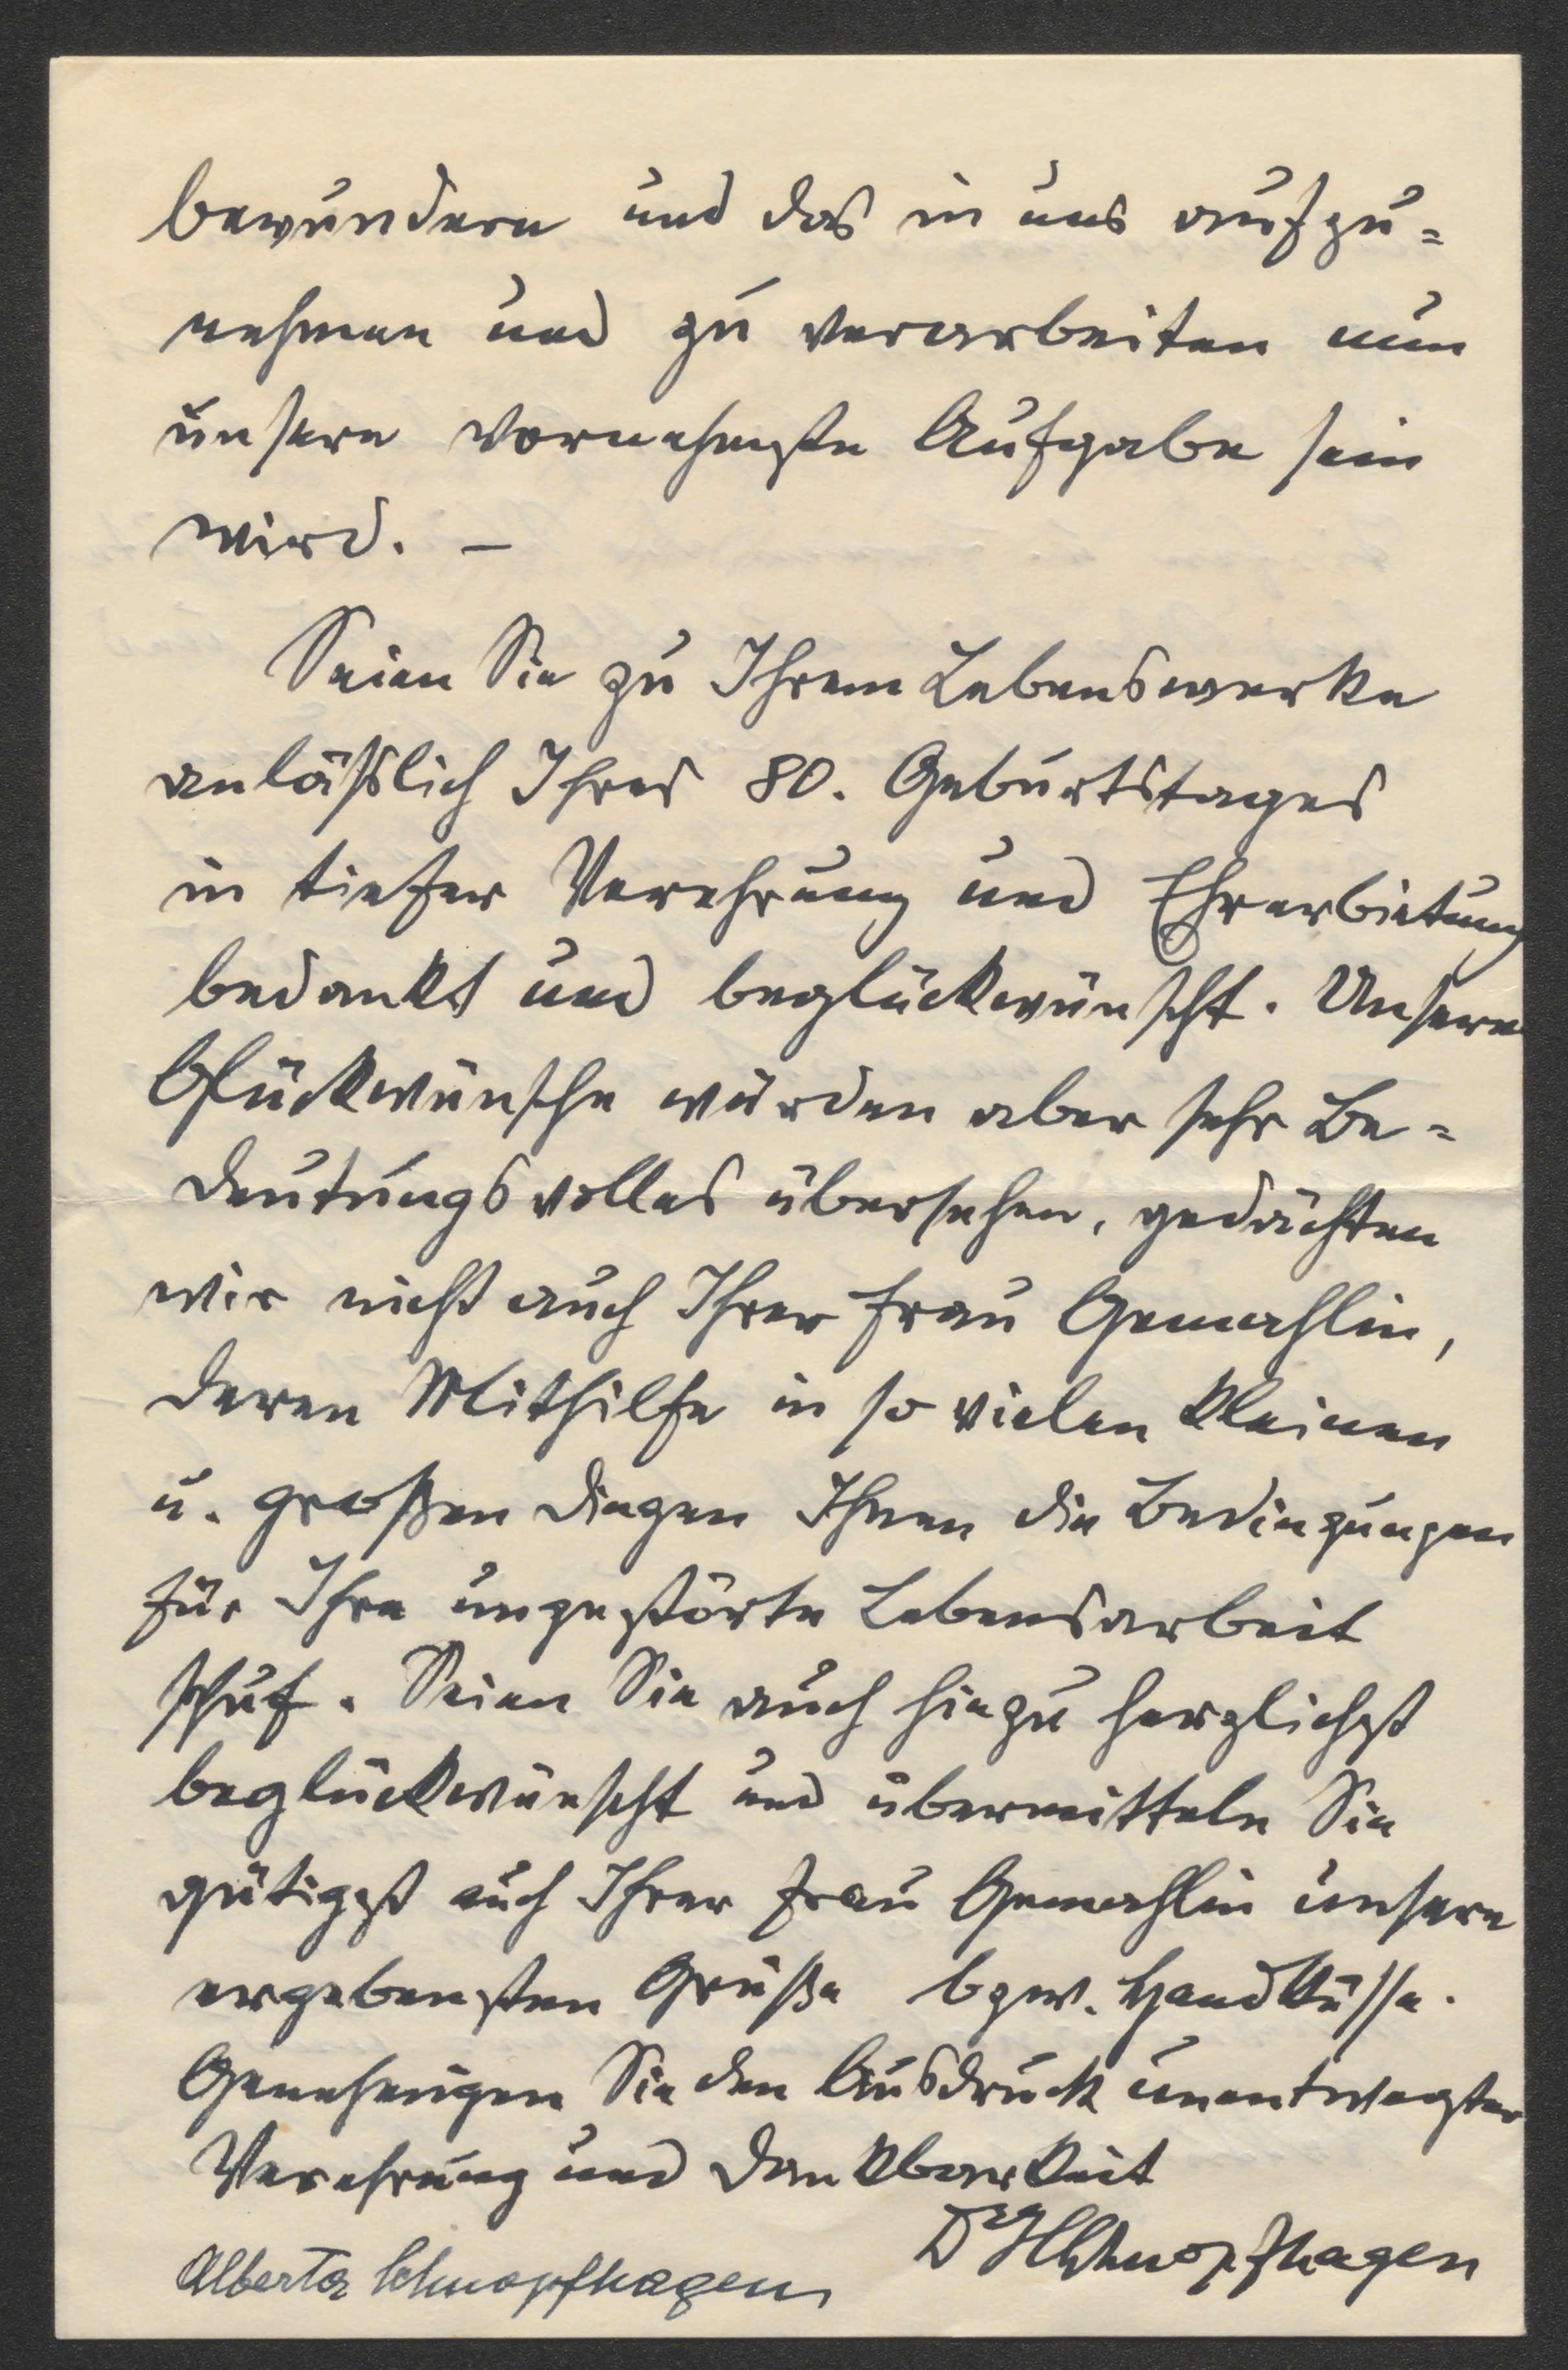 bewundern und das in uns aufzu=
nehmen und zu verarbeiten nun
unsere vornehmste Aufgabe sein
wird. –
Seien Sie zu Ihrem Lebenswerke
anläßlich Ihres 80. Geburtstages
in tiefer Verehrung und Ehrerbietung
bedankt und beglückwünscht. Unsere
Glückwünsche würden aber sehr Be=
deutungsvolles übersehen, gedächten
wir nicht auch Ihrer Frau Gemahlin,
deren Mithilfe in so vielen kleinen
u. großen Dingen Ihnen die Bedingungen
für Ihre ungestörte Lebensarbeit
schuf. Seien Sie auch hiezu herzlichst
beglückwünscht und übermitteln Sie
gütigst auch Ihrer Frau Gemahlin unsere
ergebensten Grüße bzw. Handküsse.
Genehmigen Sie den Ausdruck unentwegter
Verehrung und Dankbarkeit
Dr Schnopfhagen
Alberta Schnopfhagen